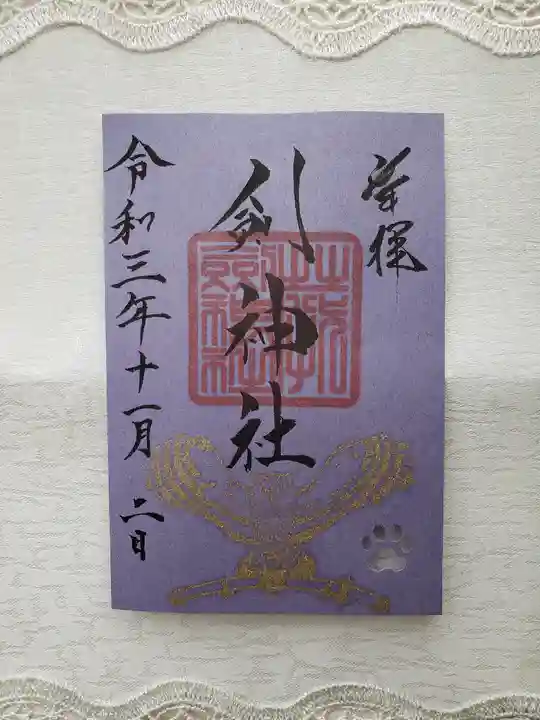 奉拝
剣神社
令和三年十一月 二日